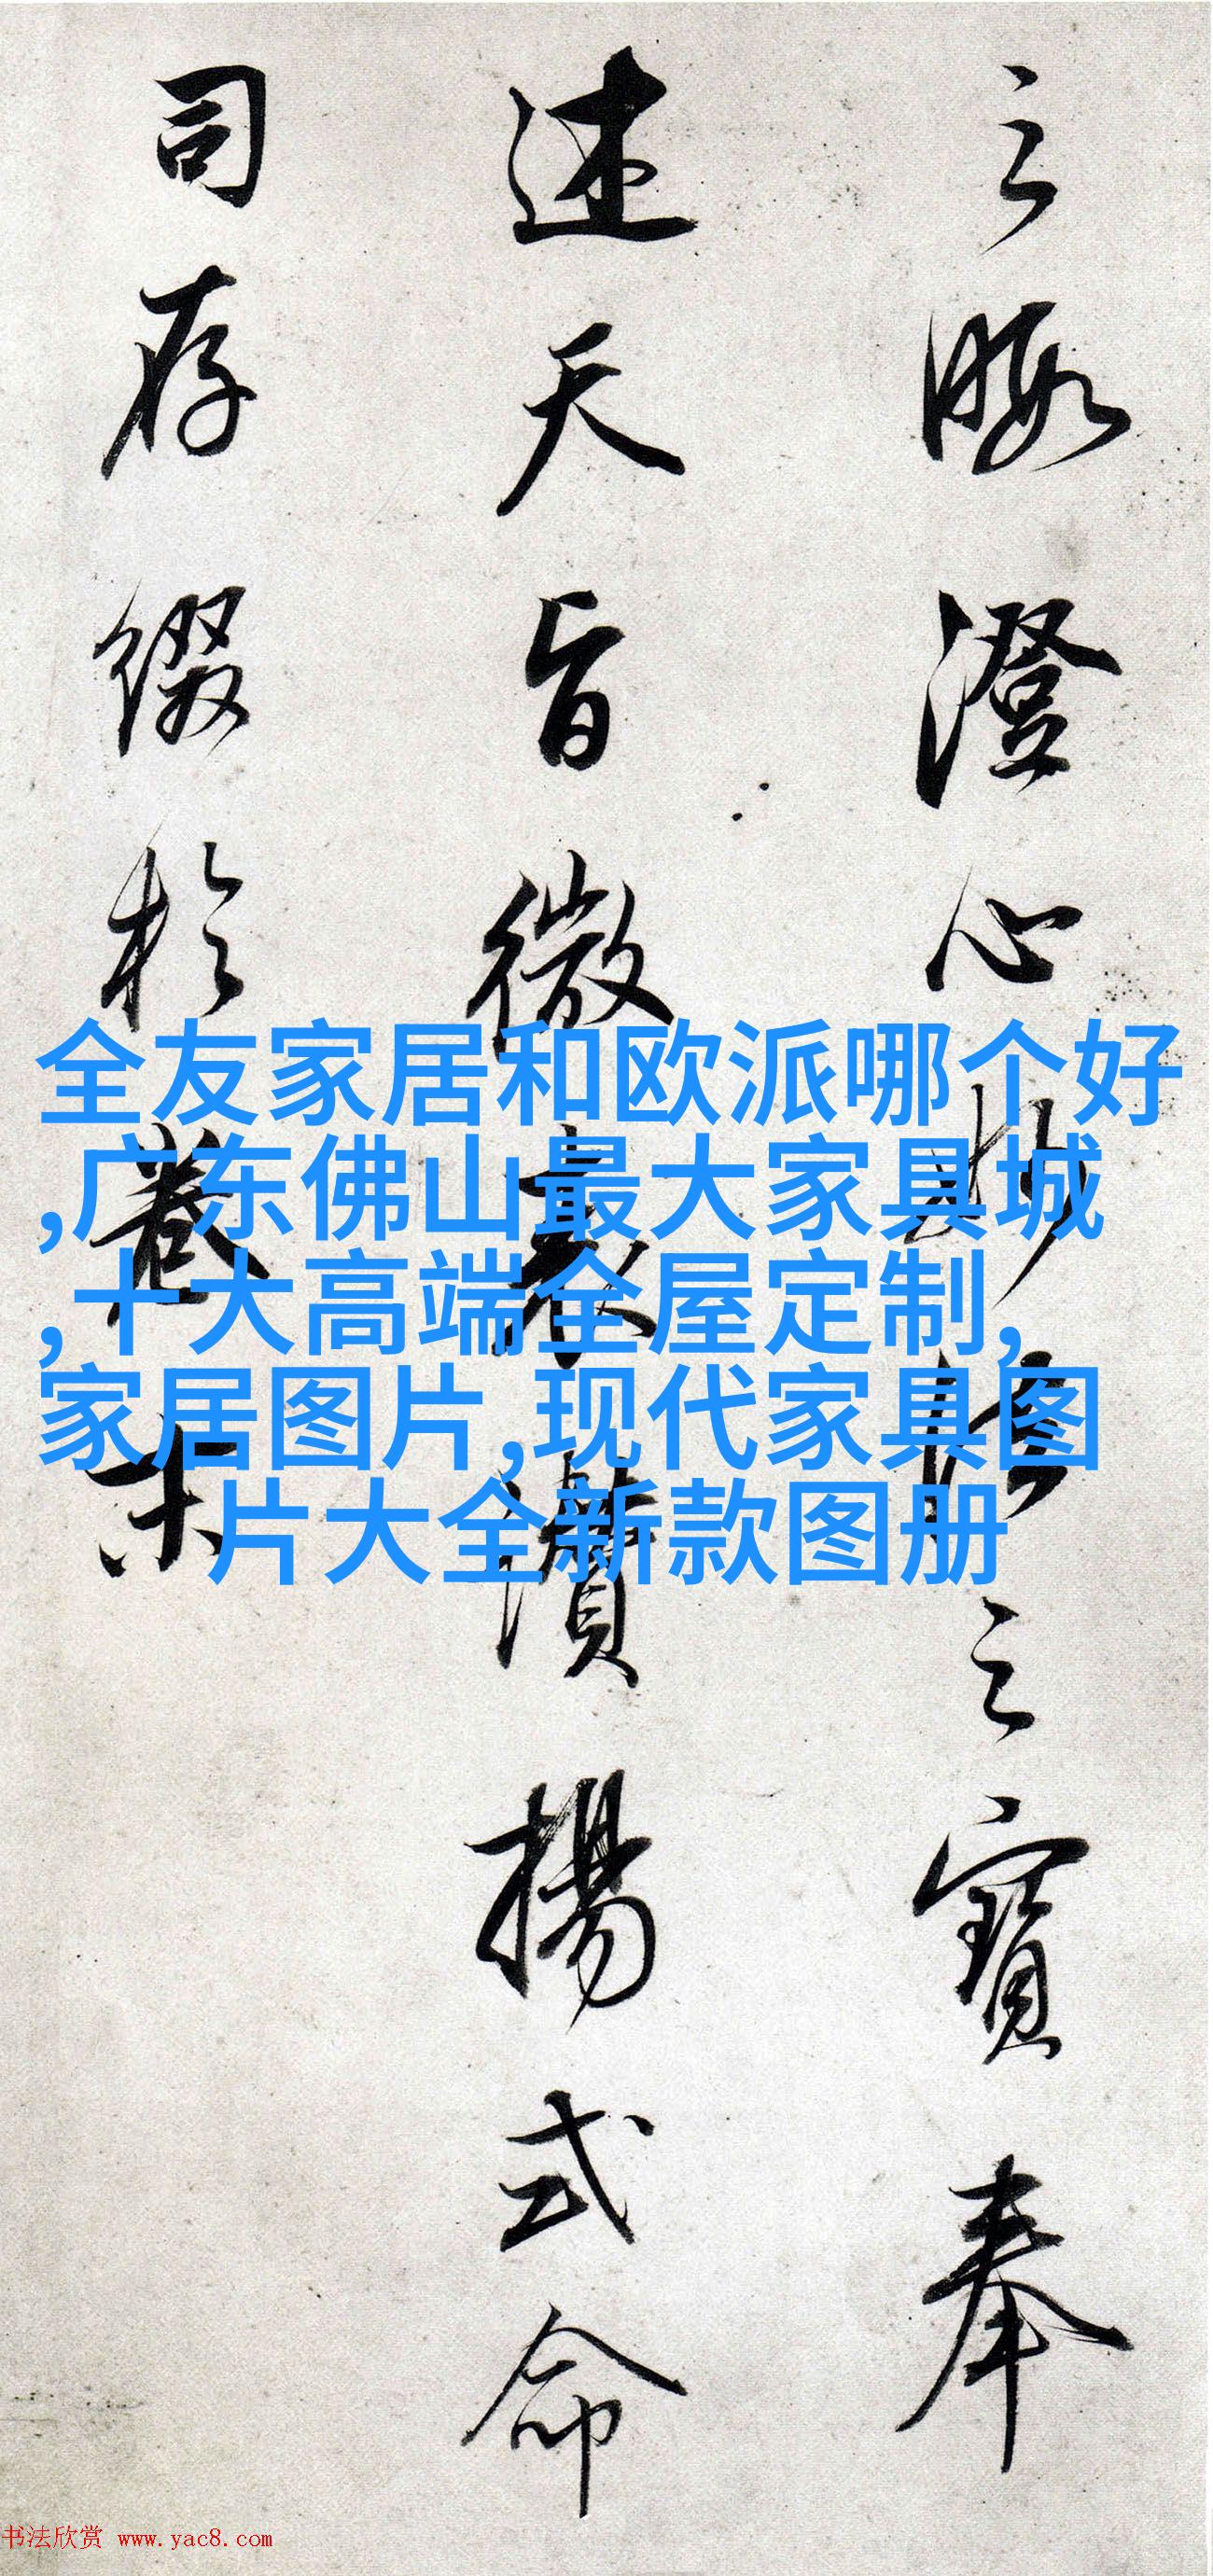 之暇澄心妙法之寶奉
述天旨微表讚揚式命
司存綴於卷末
全友家居和欧派哪个好
,广东佛山最大家具城
,十大高端全屋定制,
家居图片,现代家具图
片大全新款图册
书法欣赏 www.yac8.com